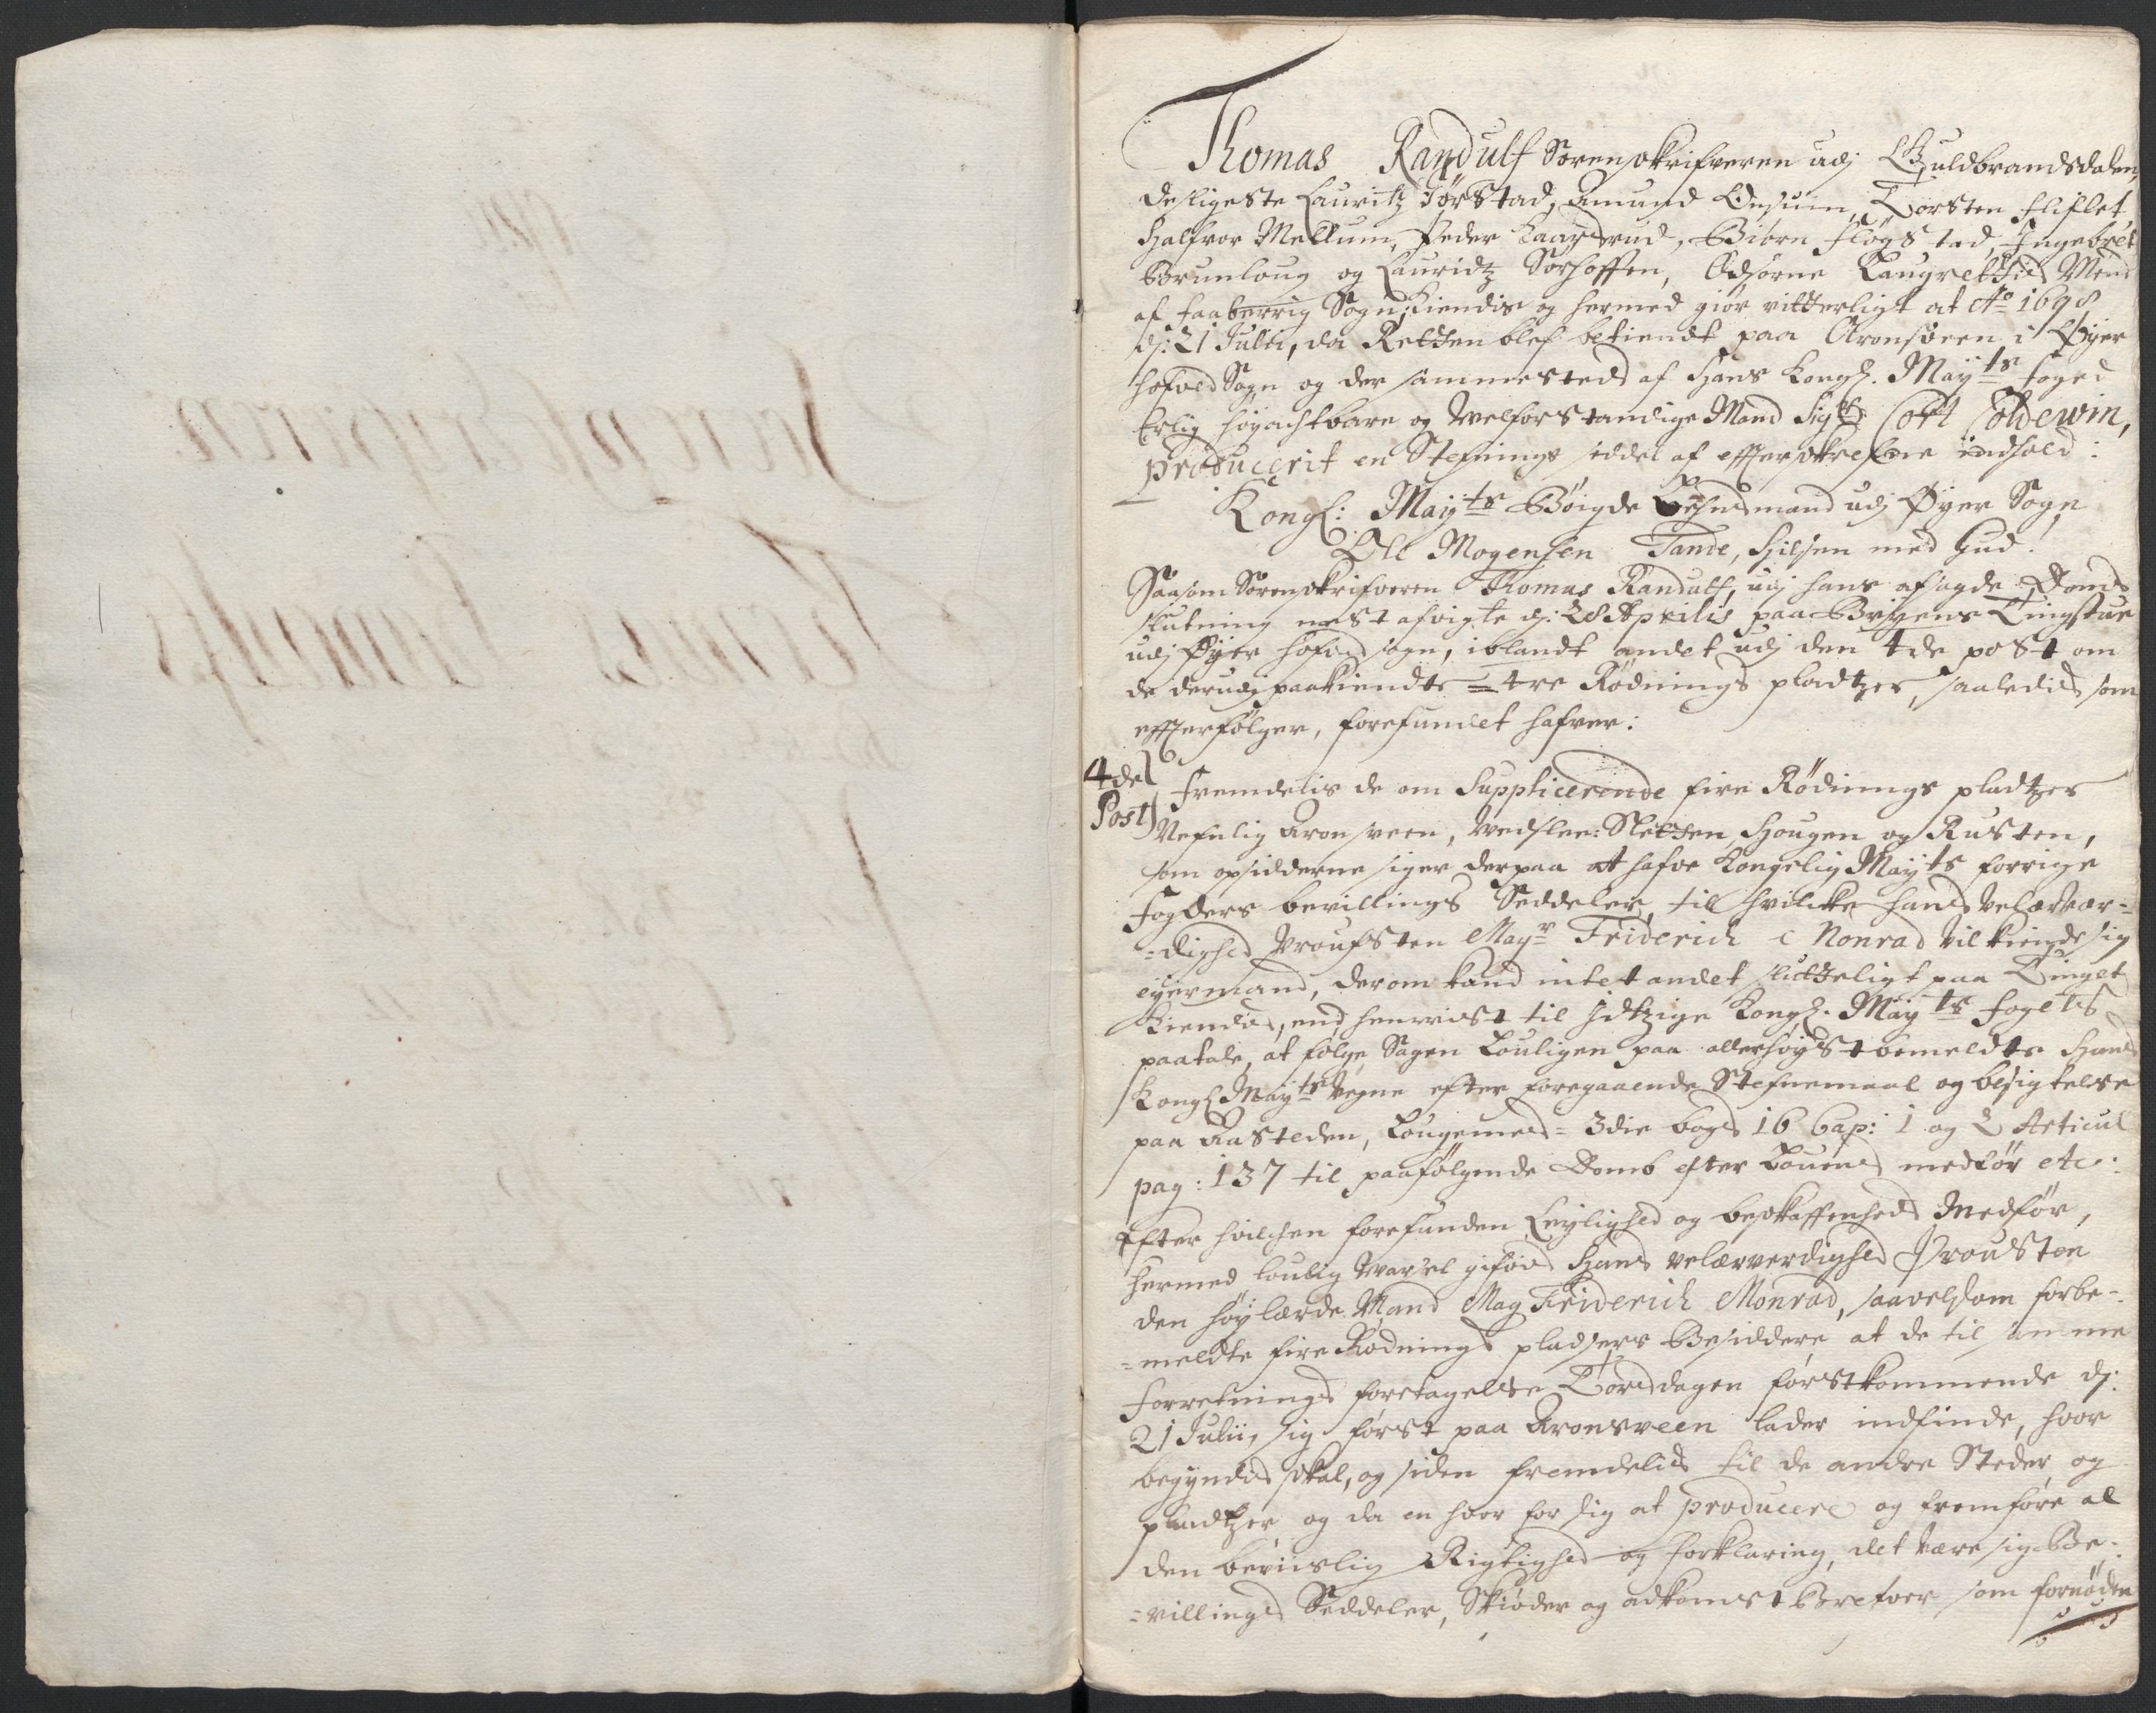 Thomas Randulf Sorenskrifveren udj Guldbrandsdalen,
desligeste Lauritz Jørstad, Amund Onsum, Torsten Fliflet,
Halfvor Mellum, Peder Kaarsrud, Biørn Fløgstad, Ingebret
Brunloug og Lauridtz Sørhoffen, Edsorne Laugrettis Mend
af Faaberrig Sogn, Kiendis og hermed giør vitterligt at Ao 1698
dj: 21 Julii, da Retten blef betiendt paa Aronsveen i Øyer
hofved Sogn og der sammesteds af Hans Kongl. Mayts foged
Erlig høyachtbare og Welforstandige Mand Sigr Cort Coldewin,
producerit en Stefnings seddel af efterskrefne indhold:
Kongl: Mayts Bøigde Lehnsmand udj Øyer Sogn
Ole Mogensen Tande, Hilsen med Gud!
Saasom Sorenskrifveren Thomas Randulf, udj hans afsagde Domb
slutning nest afvigte dj: 28 Aprilis paa Bryens Tingstue
udj Øyer hofved sogn, iblandt andet udj den 4de post om
de derudj paakiendte tre Rødnings pladtzer, saaledis som
efterfølger, forefundet hafver:
4de
Post
Fremdelis de om Supplicerende fire Rødnings pladtzer
Nefnlig Aronsveen, Wedslee: Sletten, Hougen og Rusten,
som opsidderne siger derpaa at hafve Kongelig Mayts forrige
Fogders bevillings Seddeler, til hvilcke hans velærvær=
=dighed Proufsten Magr Friderich Monrad vil kiende sig
eyermand, derom kand intet andet sluttelig paa Tinget
kiendis, end henvist til hidtzige Kongl. Mayts fogets
paatale, at følge Sagen Louligen paa allerhøyst bemeldte Hans
Kongl Mayts Vegne efter foregaaende Stefnemaal og besigtelse
paa Aasteden, Lougemes= 3die bogs 16 Cap: 1 og 2 Articul
pag: 137 til paafølgende Domb efter Lovens medfør etc:
Efter hvilchen forefunden Leylighed og beskaffenheds Medfør,
hermed loulig Warsel gifves Hans velærverdighed Prousten
den høylærde Mand Mag Friderich Monrad, saavelsom forbe=
=meldte fire Rødnings pladsers Besiddere at de til samme
forretnings foretagelse Torsdagen førstkommende dj:
21 Julii, sig først paa Aronsveen lader indfinde, hvor
begyndis skal, og siden fremdelis til de andre Steder og
pladtzer og da en hver for sig at producere og fremføre al
den bevislig Rigtighed og forklaring, det være sig Be=
=villings Seddeler, Skiøder og adkomst Brefver som fornøden